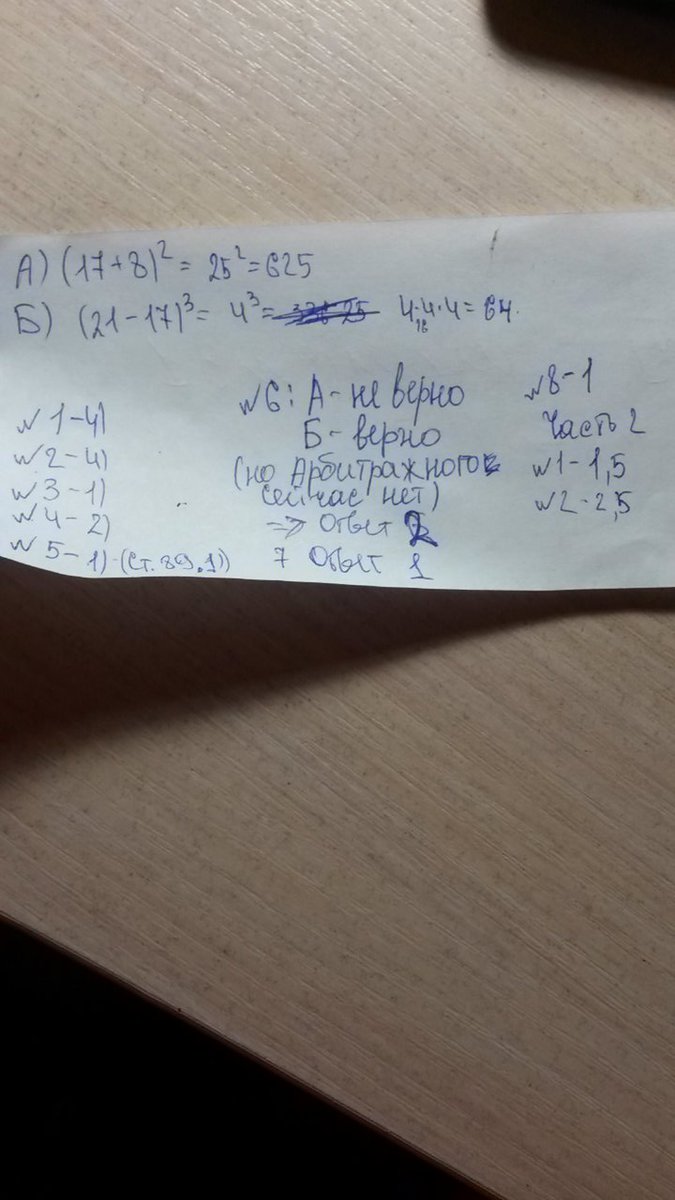 А) (17+8)² = 25² = 625
Б) (21-17)³ = 4³ = 4·4·4 = 64.
16
№1-4)
№2-4)
№3-1)
№4-2)
№5-1)-(ст.89.1))
№6: А- не верно
Б- верно
(но Арбитражного
сейчас нет)
=> Ответ 2
7 Ответ 1
№8-1
Часть 2
№1-1,5
№2-2,5